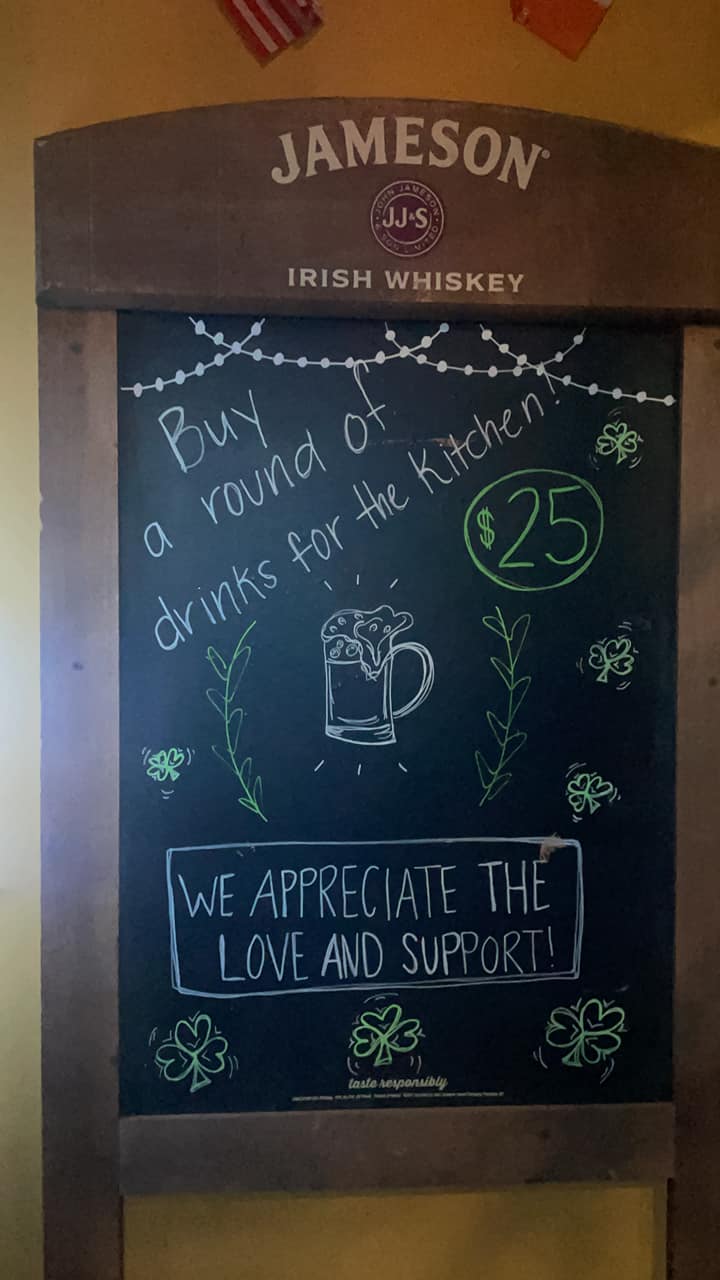 JAMESON
JOHN JAMESON
JJ&S
& SON LIMITED
IRISH WHISKEY
Buy
a round of
drinks for the Kitchen!
$25
WE APPRECIATE THE
LOVE AND SUPPORT!
taste responsibly